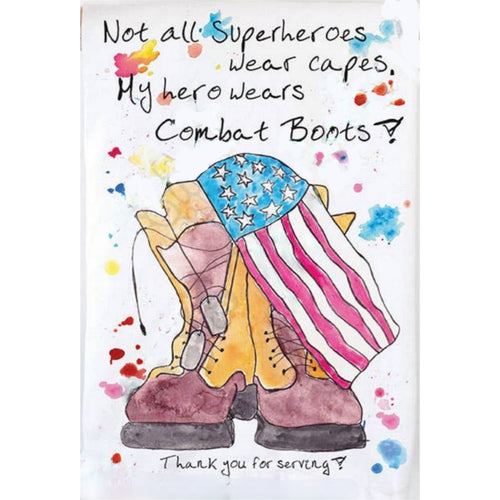 Not all Superheroes
wear capes.
My hero wears
Combat Boots!
Thank you for serving!